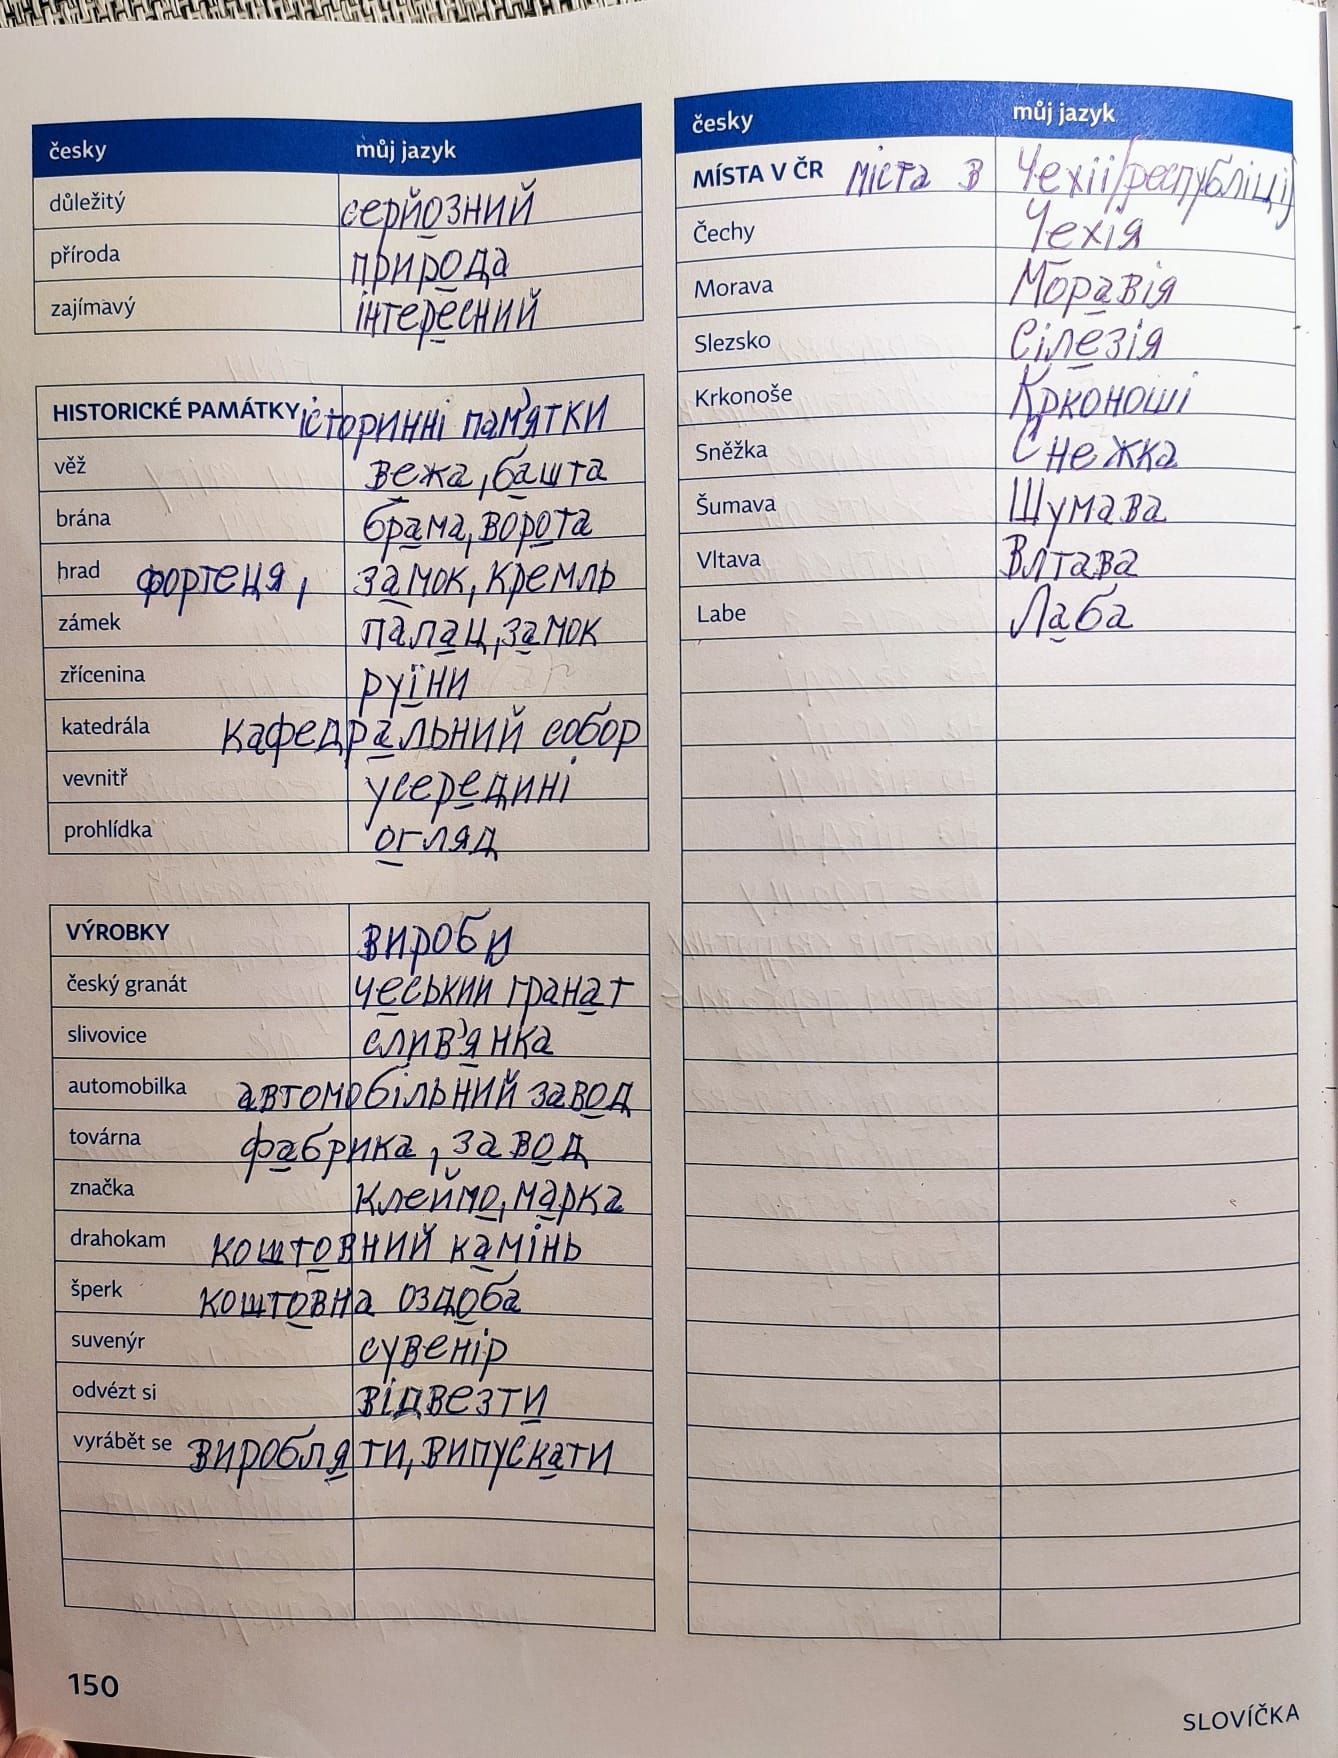 česky můj jazyk
důležitý серйозний
příroda природа
zajímavý інтересний
HISTORICKÉ PAMÁTKY історинні пам'ятки
věž вежа, башта
brána брама, ворота
hrad фортеця, замок, кремль
zámek палац, замок
zřícenina руїни
katedrála кафедральний собор
vevnitř усередині
prohlídka огляд
VÝROBKY вироби
český granát чеський гранат
slivovice слив'янка
automobilka автомобільний завод
továrna фабрика, завод
značka клеймо, марка
drahokam коштовний камінь
šperk коштовна оздоба
suvenýr сувенір
odvézt si відвезти
vyrábět se виробляти, випускати
150
česky můj jazyk
MÍSTA V ČR міста в Чехії/республіці)
Čechy Чехія
Morava Моравія
Slezsko Сілезія
Krkonoše Крконоші
Sněžka Снежка
Šumava Шумава
Vltava Влтава
Labe Лаба
SLOVÍČKA